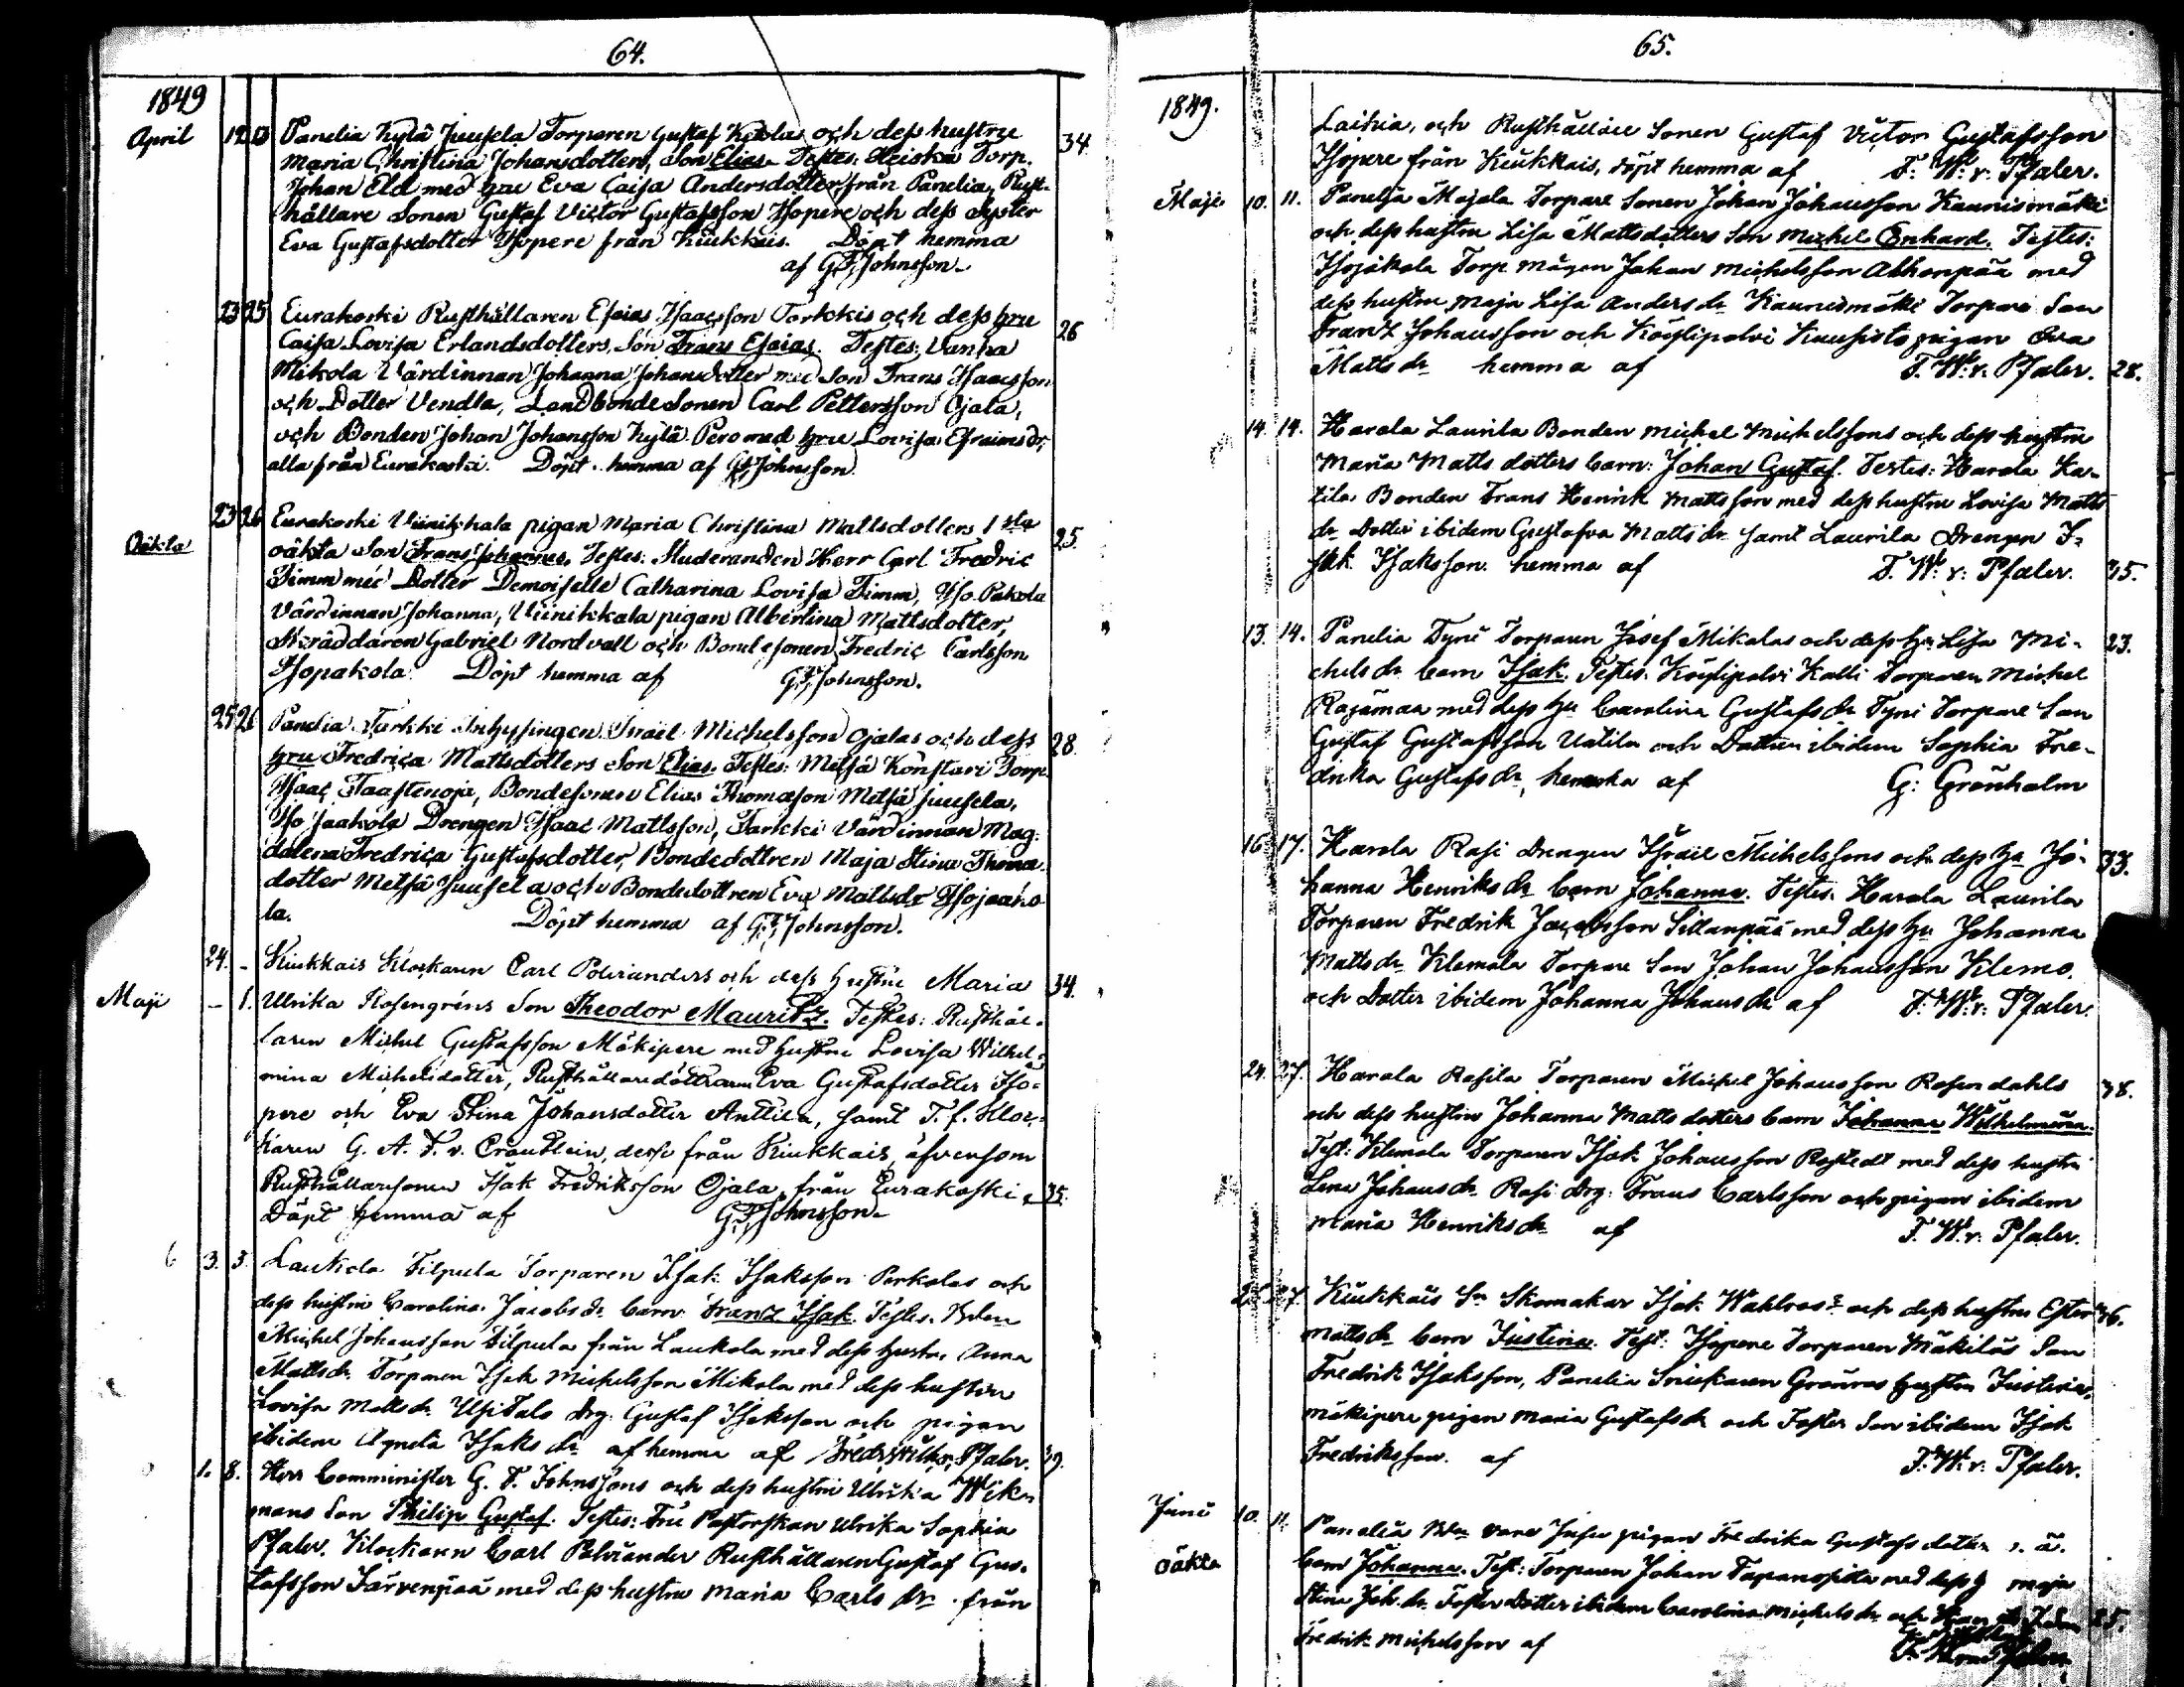 64.
1849
April 12 13 Panelia Kylä Juusela Torparen Gustaf Ketolas och dess hustru 34.
Maria Christina Johansdotters, Son Elias. Testes: Heiska Torp.
Johan Eld med hru Eva Caisa Andersdotter från Panelia, Rust-
hållare Sonen Gustaf Victor Gustafsson Isopere och dess Syster
Eva Gustafsdotter Isopere från Kiukkais. Döpt hemma
af G.F. Johnsson.
23 25 Eurakoski Rusthållaren Esaias Isaacsson Torkkis och dess hru 26
Caisa Lovisa Erlandsdotters, Son Frans Esaias. Testes: Vanha
Mikola Värdinnan Johanna Johansdotter med Son Frans Isaacsson
och Dotter Vendla, Landbonde Sonen Carl Pettersson Ojala,
och Bonden Johan Johansson Kylä Pero med hru Lovisa Efraimsdr,
alla från Eurakoski. Döpt hemma af G.F. Johnsson.
23 26 Eurakoski Viinikkala pigan Maria Christina Mattsdotters 1sta 25.
Oäkta oäkta Son Frans Johannes. Testes: Studeranden Herr Carl Fredric
Timm med Dotter Demoiselle Catharina Lovisa Timm, Iso Pakola
Värdinnan Johanna, Viinikkala pigan Albertina Mattsdotter,
Skräddaren Gabriel Nordvall och Bondesonen Fredric Carlsson
Isopakola. Döpt hemma af G.F. Johnsson.
25 26 Panelia Tarkki Inhysingen Israël Michelsson Ojalas och dess 28.
hru Fredrica Mattsdotters Son Elias. Testes: Metsä Könstari Torp.
Isaac Taastenoja, Bondesonen Elias Thomasson Metsä Juusela,
Iso Jaakola Drengen Isaac Mattsson, Tarkki Värdinnan Mag-
dalena Fredrica Gustafsdotter, Bondedottren Maja Stina Thomas-
dotter Metsä Juusela och Bondedottren Eva Mattsdr Isojaako-
la. Döpt hemma af G.F. Johnsson.
24. - Kiukkais Klockaren Carl Polvianders och dess hustru Maria 34.
Maji - 1. Ulrika Rosengréns Son Theodor Mauritz. Testes: Rusthål-
laren Michel Gustafsson Mäkipere med hustru Lovisa Wilhel-
mina Michelsdotter, Rusthållaredöttrarna Eva Gustafsdotter Iso-
pere och Eva Stina Johansdotter Anttila, samt T. f. Kloc-
karen G. A. F. v. dessa från Kiukkais, äfvensom
Rusthållaresonen Isak Fredriksson Ojala från Eurakoski. 35.
Döpt hemma af G.F. Johnsson.
6 3. 3. Laukola Filpula Torparen Isak Isaksson Perkolas och
dess hustru Carolina Jacobs dr barn Franz Isak. Testes.
Michel Johansson Filpula från Laukola med dess hustru Anna
Matts dr. Torparen Isak Michelsson Mikola med dess hustru
Lovisa Matts dr. Usitalo drg. Gustaf Isaksson och pigan
ibidem Agneta Isaks dr hemma af Fredr. Wilh. v. Pfaler. 39.
1. 8. Herr Comminister G. F. Johnssons och dess hustru Ulrika Wik-
mans Son Philip Gustaf. Testes: Fru Pastorskan Ulrika Sophia
Pfaler. Klockaren Carl Polviander Rusthållaren Gustaf Gus-
tafsson Järvenpää med dess hustru Maria Carls dr från
65.
1849.
Laihia, och Rusthållare Sonen Gustaf Victor Gustafsson
Isopere från Kiukkais, döpt hemma af F. W. v. Pfaler.
Maji 10. 11. Panelia Majala Torpare Sonen Johan Johansson Kaunismäki
och dess hustru Lisa Mattsdotters Son Michel Enhard. Testes:
Isojakola Torp. mågen Johan Michelsson Alhonpää med
dess hustru Maja Lisa Anders dr Kaunismäki Torpare Son
Franz Johansson och Köylipolvi Kuusisto pigan Eva
Matts dr hemma af F. W. v. Pfaler. 28.
14. 14. Harola Laurila Bonden Michel Michelssons och dess hustru
Maria Matts dotters barn: Johan Gustaf. Testes: Harola Ka-
tila Bonden Frans Henrik Mattsson med dess hustru Lovisa Matts
dr Dotter ibidem Gustafva Matts dr samt Laurila Drengen I-
sak Isaksson. hemma af F. W. v. Pfaler. 35.
13. 14. Panelia Tyni Torparen Josef Mikolas och dess hu Lisa Mi- 23.
chels dr barn Isak. Testes: Köylipolvi Kalli Torparen Michel
Rajamaa med dess hu Carolina Gustafs dr Tyni Torpare Son
Gustaf Gustafsson Uutila och Dotter ibidem Sophia Fre-
drika Gustafs dr, hemma af G: Grönholm
16 17. Harola Rasi Drengen Israel Michelssons och dess hu Jo- 33.
hanna Henriks dr barn Johanna. Testes: Harola Laurila
Torparen Fredrik Jacobsson Sillanpää med dess hu Johanna
Matts dr Klemola Torpare Son Johan Johansson Klemo.
och Dotter ibidem Johanna Johans dr af F. W. v. Pfaler.
24. 27. Harola Rasila Torparen Michel Johansson Rosendahls 38.
och dess hustru Johanna Matts dotters barn Johanna Wilhelmina.
Test: Klemola Torparen Isak Johansson Rostedt med dess hustru
Lena Johans dr. Rasi drg: Frans Carlsson och pigan ibidem
Maria Henriks dr af F. W. v. Pfaler.
25. 27. Kiukkais Sn Skomakar Isak Wahlroos och dess hustru Ester 36.
Matts dr barn Justina. Test: Isopere Torparen Mäkiläs Son
Fredrik Isaksson, Panelia Snickaren Grönroos hustru Justina,
Mäkipere pigan Maria Gustafs dr och Foster Son ibidem Isak
Fredriksson. af F. W. v. Pfaler.
Juni 10. 11. Panelia pigan Fredrika Gustafs dotter
oäkta barn Johanna. Test: Torparen Johan med dess h Maja
Stina Joh. dr. Foster Dotter ibidem Carolina Michels dr och 25.
Fredrik Michelsson af